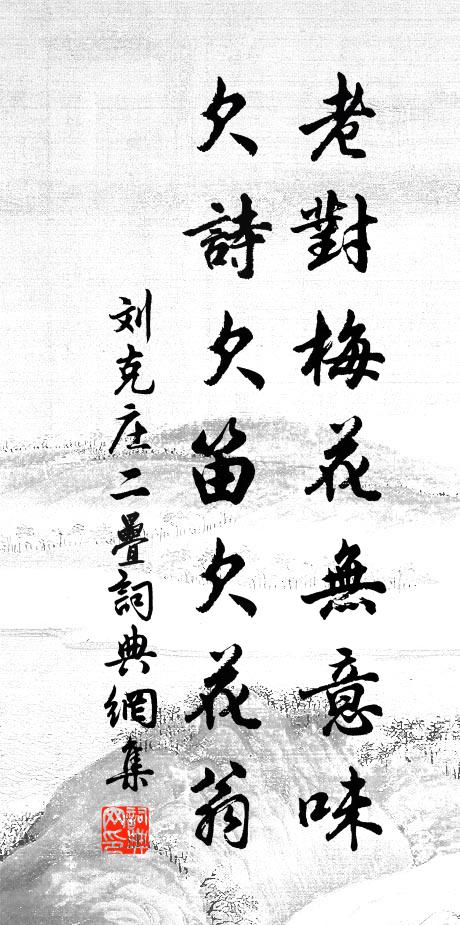 老對梅花無意味
欠詩欠笛欠花翁
刘克庄二疊詞典網集